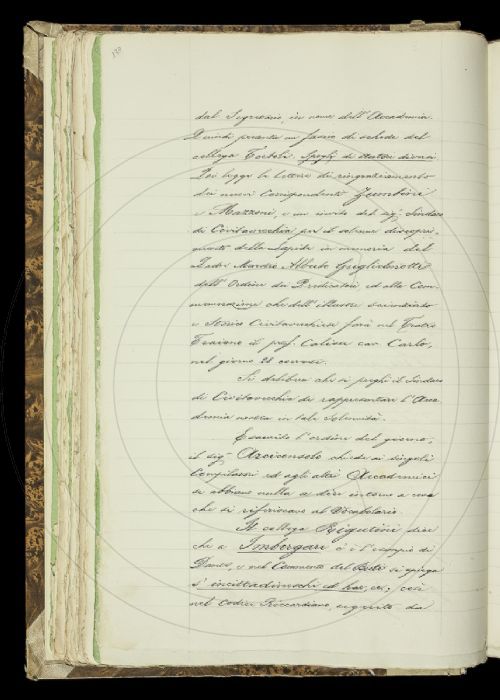 138
dal Segretario, in nome dell'Accademia.
Quindi presenta un fascio di schede del
collega Tortoli, spogli di diversi
Poi legge le lettere di ringraziamento
dei nuovi Corrispondenti Zumbini
e Mazzoni, e un invito del sig. Sindaco
di Civitavecchia per il solenne discopri-
mento della lapide in memoria del
Padre Maestro Alberto Guglielmotti
dell'Ordine dei Predicatori ed alla Com-
memorazione che dell'illustre
e Storico Civitavecchiese farà nel Teatro
Traiano il prof. Calisse cav. Carlo,
nel giorno 28 corrente.
Si delibera che si preghi il Sindaco
di Civitavecchia di rappresentare l'Acca-
demia nostra in tale solennità.
Esaurito l'ordine del giorno,
il sig. Arciconsolo chiede ai singoli
Compilatori ed agli altri Accademici
se abbiano nulla a dire intorno a cosa
che si riferiscano al Vocabolario.
Il collega Rigutini dice
che a Imborgare c'è l'esempio di
Dante, e nel Commento del Buti si spiega
s'incittadineschi di due, ec.; così
nel codice Riccardiano, seguito da